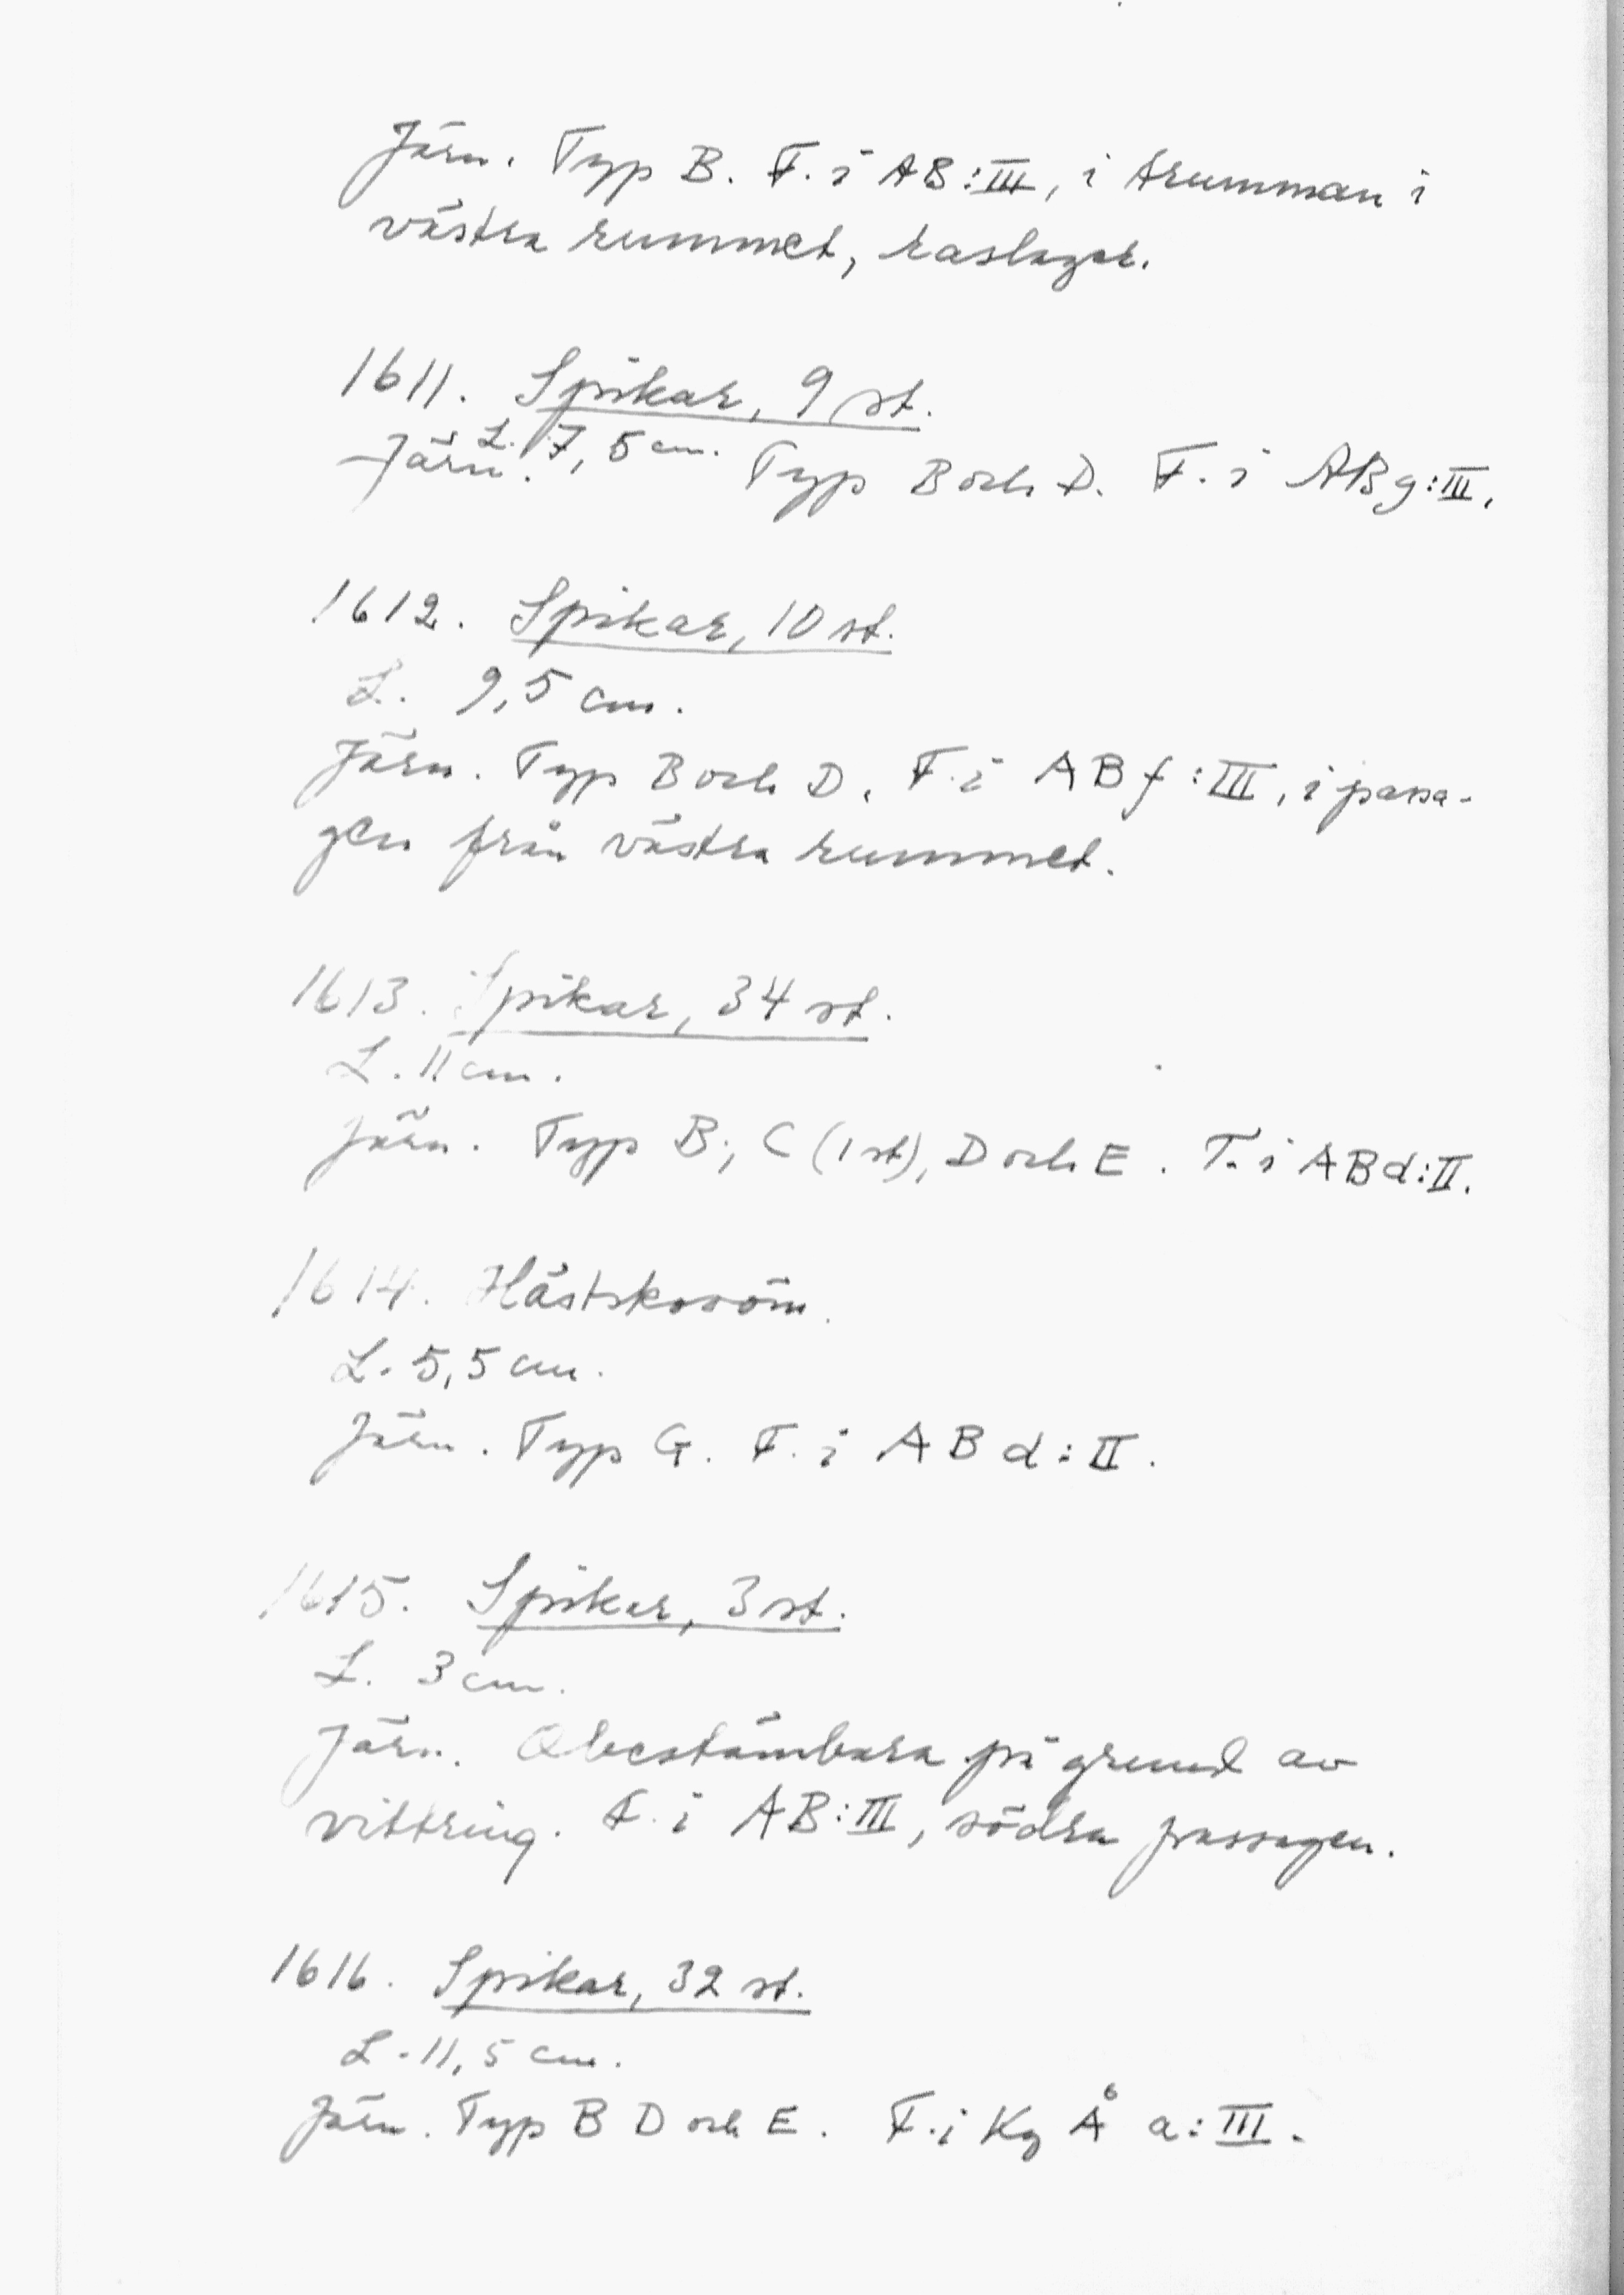 Järn. Typ B. F. i AB:III, i trumman i
västra rummet, raslager.
1611. Spikar, 9 st.
L. 7,5 cm.
Järn. Typ B och D. F. i ABg:III.
1612. Spikar, 10 st.
L. 9,5 cm.
Järn. Typ B och D. F. i ABf:III, i passa-
gen från västra rummet.
1613. Spikar, 34 st.
L. 11 cm.
Järn. Typ B, C (1 st), D och E. F. i ABd:II.
1614. Hästskosöm.
L. 5,5 cm.
Järn. Typ G. F. i ABd:II.
1615. Spikar, 3 st.
L. 3 cm.
Järn. Obestämbara på grund av
vittring. F. i AB:III, södra passagen.
1616. Spikar, 32 st.
L. 11,5 cm.
Järn. Typ B D och E. F. i Kg Å a:III.